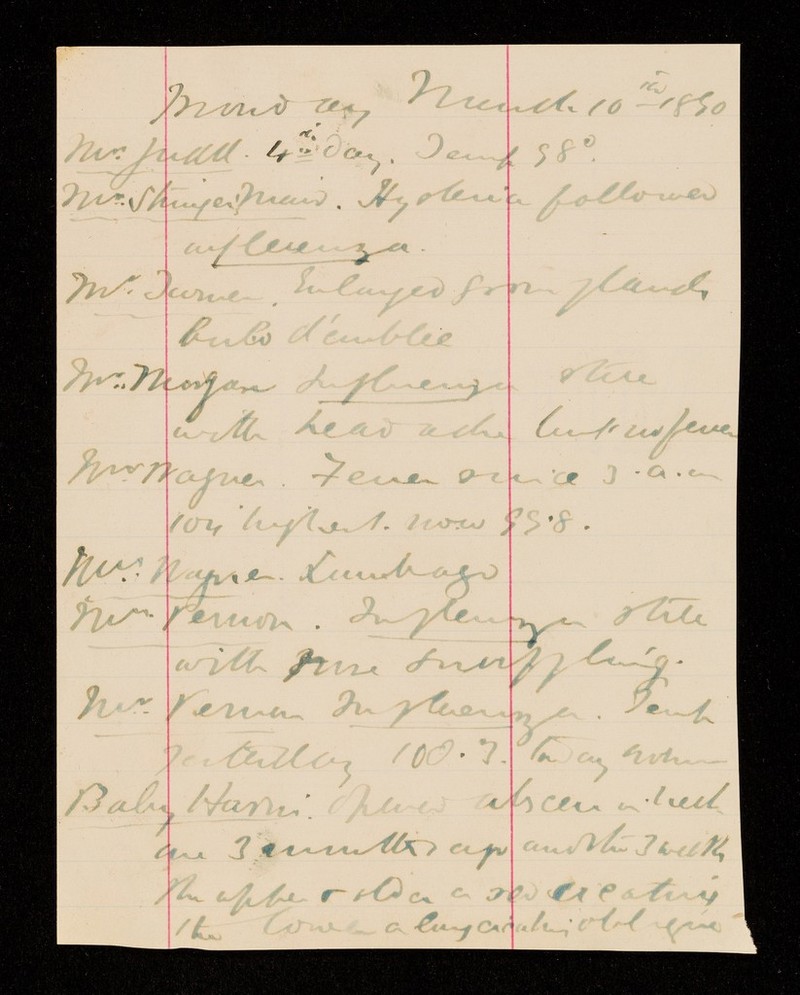 Monday March 10th 1890
Mr. Judd. 4th day. Temp 98°.
Mrs. Stringer's Maid. Hysteria followed
influenza.
Mr. Turner. Enlarged groin glands
bubo d'emblée
Mrs. Morgan Influenza still
with head ache but no fever
Mr Wagner. Fever since 3.a.m
104 highest. now 99.8.
Mrs. Wagner. Lumbago
Mrs. Vernon. Influenza still
with some snuffling.
Mr. Vernon Influenza. Temp
yesterday 100.3. today
Baby Harris. Opened abscess in neck
one 3 months ago and the 3 weeks
the upper & older a red cicatrix
the lower a long